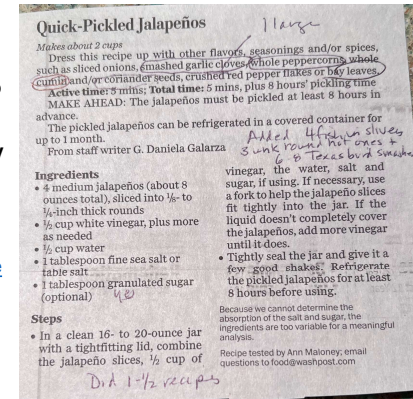 Quick-Pickled Jalapeños
1 large
Makes about 2 cups
Dress this recipe up with other flavors, seasonings and/or spices,
such as sliced onions, smashed garlic cloves, whole peppercorns, whole
cumin and/or coriander seeds, crushed red pepper flakes or bay leaves.
Active time: 5 mins; Total time: 5 mins, plus 8 hours' pickling time
MAKE AHEAD: The jalapeños must be pickled at least 8 hours in
advance.
The pickled jalapeños can be refrigerated in a covered container for
up to 1 month.
From staff writer G. Daniela Galarza
Added 4 fish in slices
3 unk round hot ones +
6-8 Texas bird smashed
Ingredients
• 4 medium jalapeños (about 8
ounces total), sliced into ⅛- to
¼-inch thick rounds
• ½ cup white vinegar, plus more
as needed
• ½ cup water
• 1 tablespoon fine sea salt or
table salt
• 1 tablespoon granulated sugar
(optional) yes
Steps
• In a clean 16- to 20-ounce jar
with a tightfitting lid, combine
the jalapeño slices, ½ cup of
vinegar, the water, salt and
sugar, if using. If necessary, use
a fork to help the jalapeño slices
fit tightly into the jar. If the
liquid doesn't completely cover
the jalapeños, add more vinegar
until it does.
• Tightly seal the jar and give it a
few good shakes. Refrigerate
the pickled jalapeños for at least
8 hours before using.
Because we cannot determine the
absorption of the salt and sugar, the
ingredients are too variable for a meaningful
analysis.
Recipe tested by Ann Maloney; email
questions to food@washpost.com
Did 1-½ recipes